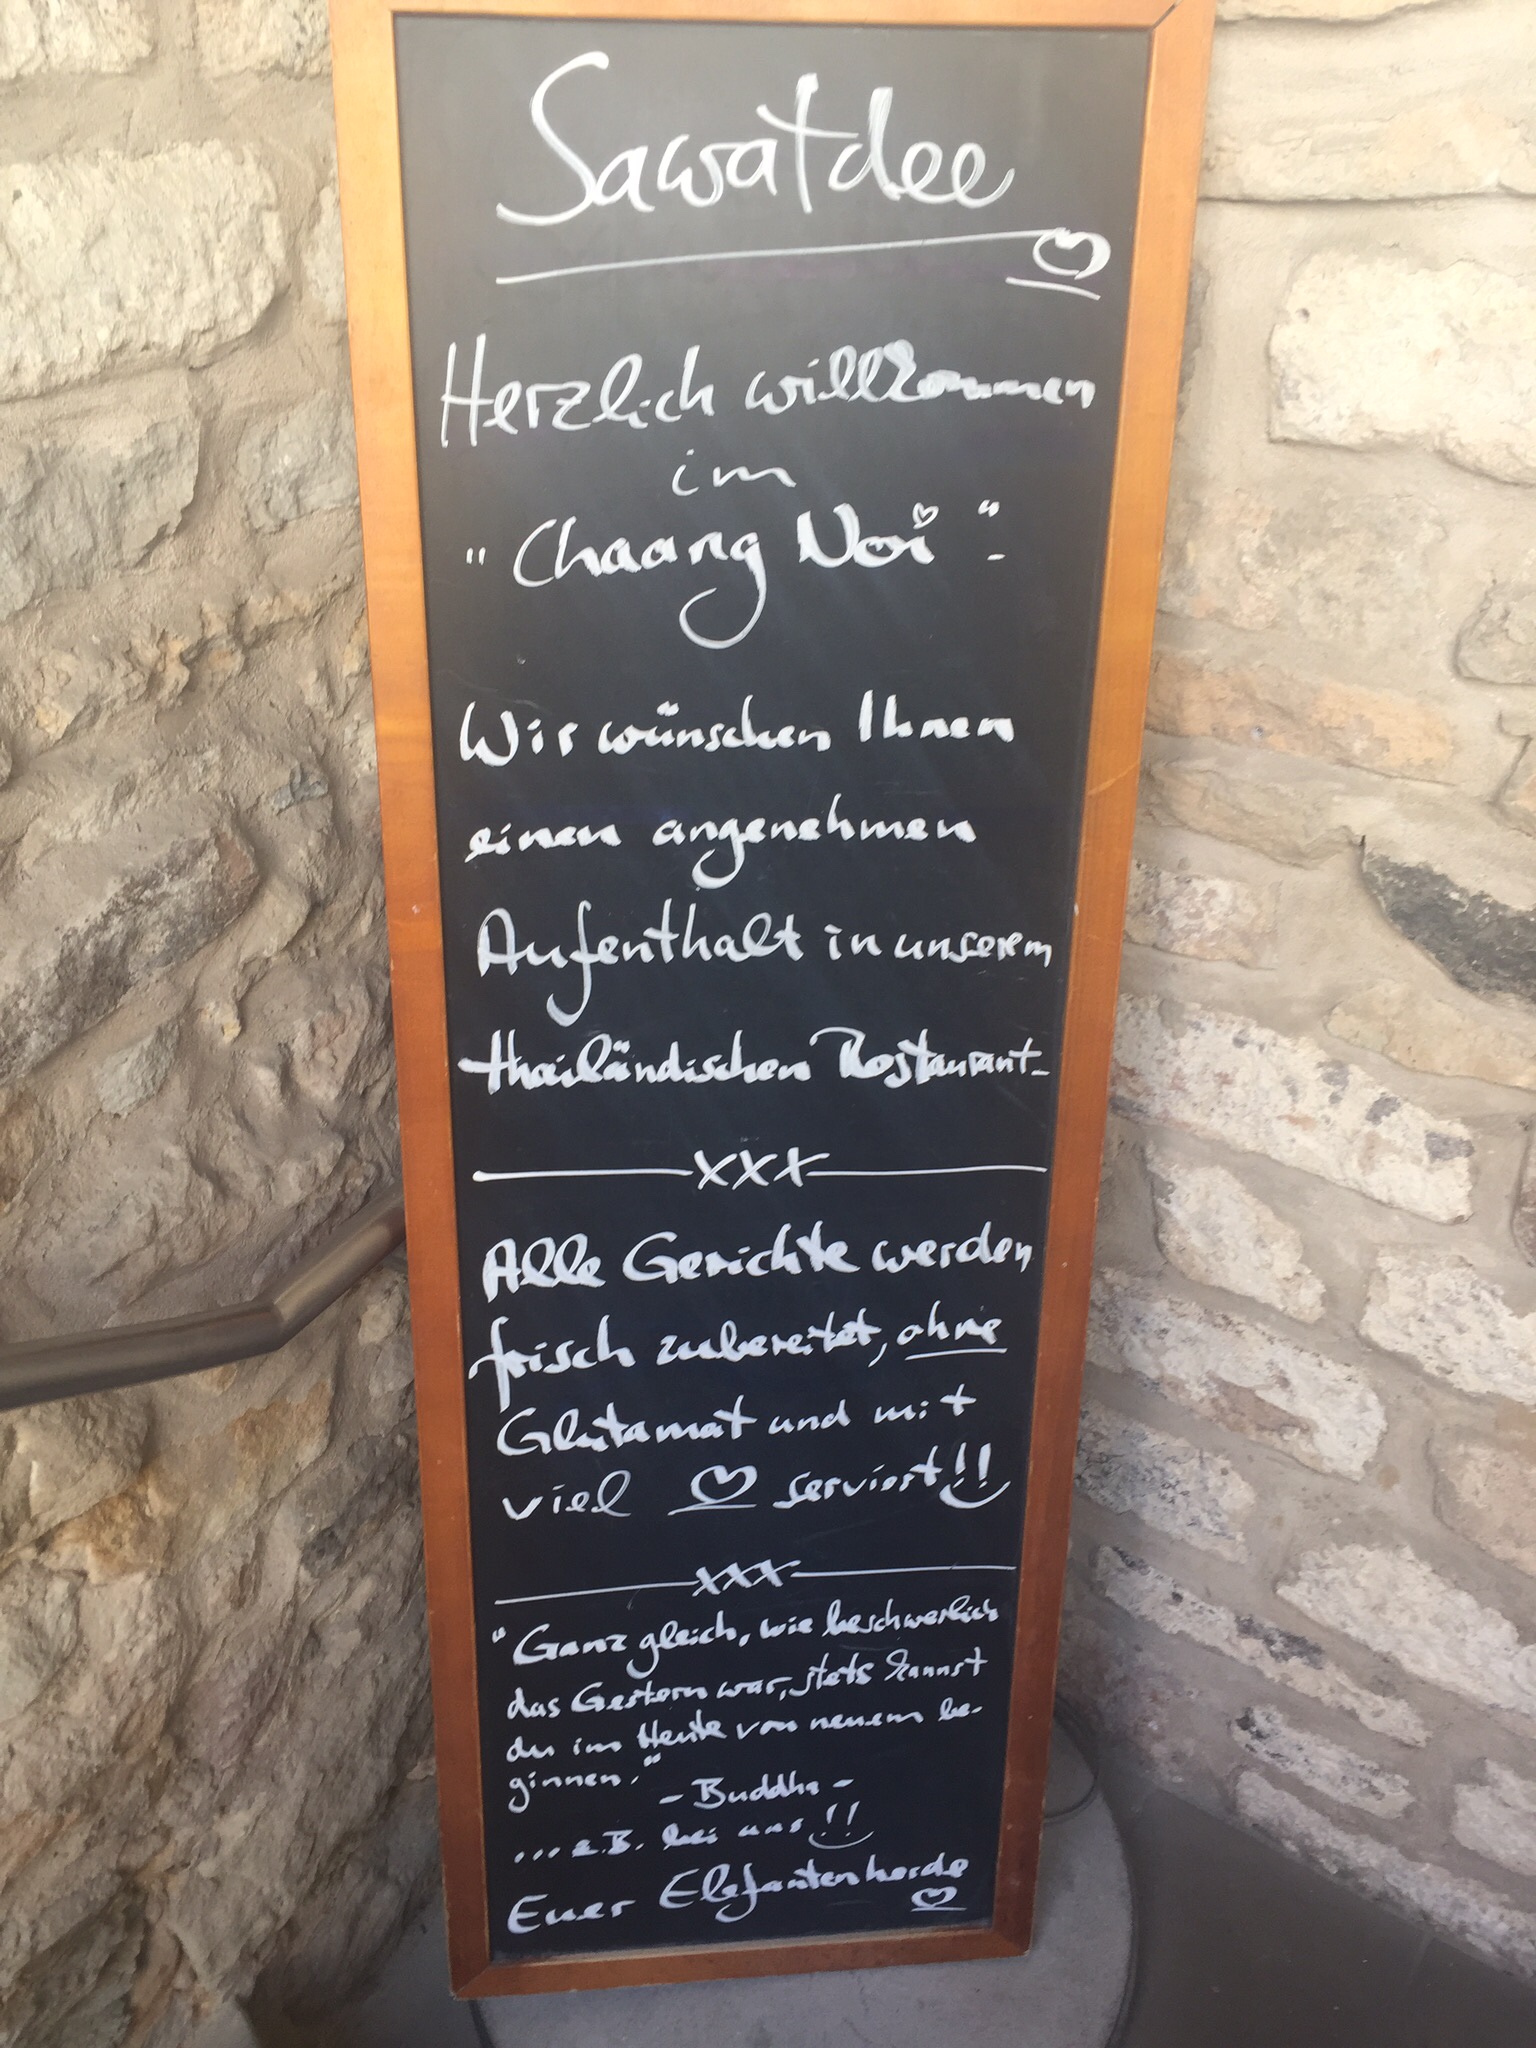 Sawatdee
Herzlich willkommen
im
"Chaang Noi".
Wir wünschen Ihnen
einen angenehmen
Aufenthalt in unserem
thailändischen Restaurant.
xxx
Alle Gerichte werden
frisch zubereitet, ohne
Glutamat und mit
viel ♡ serviert!!
xxx
"Ganz gleich, wie beschwerlich
das Gestern war, stets kannst
du im Heute von neuem be-
ginnen."
- Buddha -
... z.B. bei uns!!
Euer Elefantenherde
♡